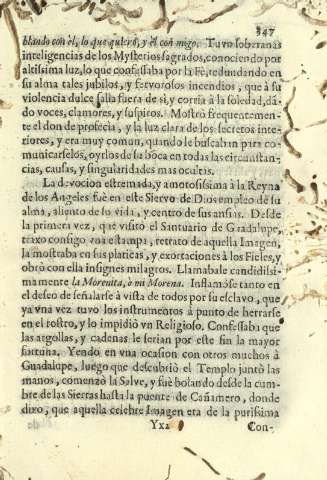 347
blando con èl, lo que quiero, y èl con migo. Tuvo soberanas
inteligencias de los Mysterios sagrados, conociendo por
altissima luz, lo que confessaba por la Fè, redundando en
su alma tales jubilos, y fervorosos incendios, que à su
violencia dulce salia fuera de sì, y corria à la soledad, dã-
do voces, clamores, y suspiros. Mostrò frequentemen-
te el don de profecia, y la luz clara de los secretos inte-
riores, y era muy comun, quando le buscaban para co-
municarselos, oyrlos de su boca en todas las circunstan-
cias, causas, y singularidades mas ocultas.
La devocion estremada, y amorosissima à la Reyna
de los Angeles fuè en este Siervo de Dios empleo de su
alma, aliento de su vida, y centro de sus ansias. Desde
la primera vez, que visitò el Santuario de Guadalupe,
traxo consigo vna estampa, retrato de aquella Imagen,
la mostraba en sus platicas, y exortaciones à los Fieles, y
obrò con ella insignes milagros. Llamabale candidissi-
mamente la Morenita, ò mi Morena. Inflamòse tanto en
el deseo de señalarse à vista de todos por su esclavo, que
ya vna vez tuvo los instrumentos à punto de herrarse
en el rostro, y lo impidiò vn Religioso. Confessaba que
las argollas, y cadenas le serian por este fin la mayor
fortuna. Yendo en vna ocasion con otros muchos à
Guadalupe, luego que descubriò el Templo juntò las
manos, comenzò la Salve, y fuè bolando desde la cum-
bre de las Sierras hasta la puente de Cañamero, donde
dixo, que aquella celebre Imagen era de la purissima
Yx2
Con-